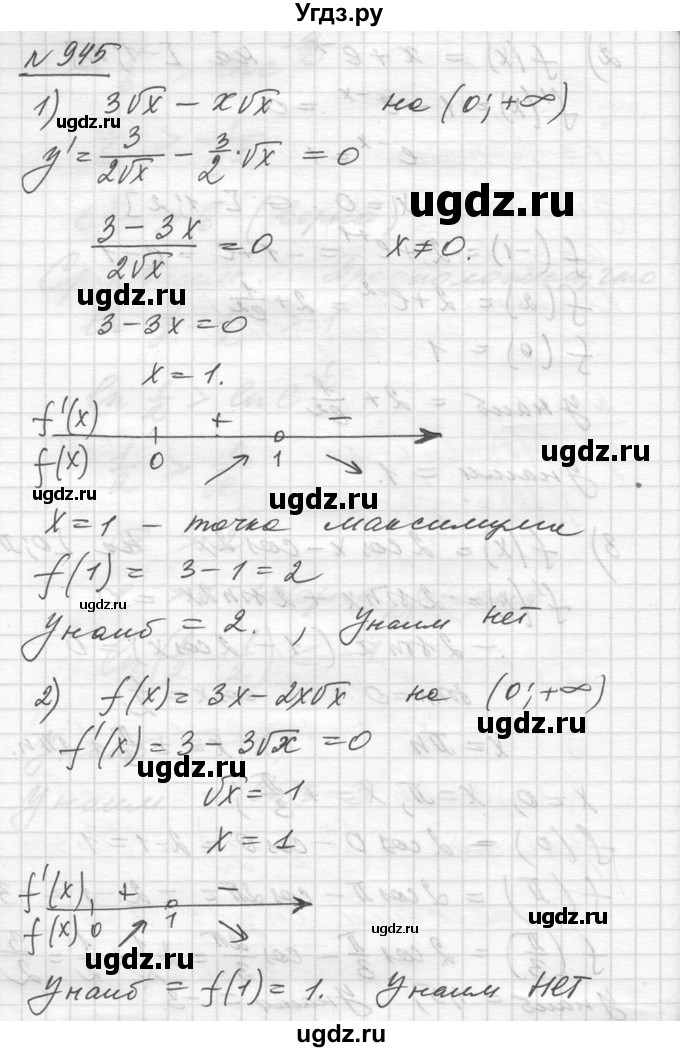 Угдз.ру
№ 945
1) 3√x − x√x на (0; +∞)
ugdz.ru
y' = 3/(2√x) − 3/2·√x = 0
ugdz.ru
(3 − 3x)/(2√x) = 0 x ≠ 0.
ugdz.ru
3 − 3x = 0
x = 1.
f'(x) + −
ugdz.ru
f(x) 0 ↗ 1 ↘
ugdz.ru ugdz.ru
x = 1 − точка максимума
f(1) = 3 − 1 = 2
ugdz.ru
Yнаиб = 2. , Yнаим нет
2) f(x) = 3x − 2x√x на (0; +∞)
ugdz.ru
f'(x) = 3 − 3√x = 0
ugdz.ru
√x = 1
x = 1
f'(x) + −
f(x) 0 ↗ 1 ↘
ugdz.ru
ugdz.ru
Yнаиб = f(1) = 1. Yнаим нет
ugdz.ru